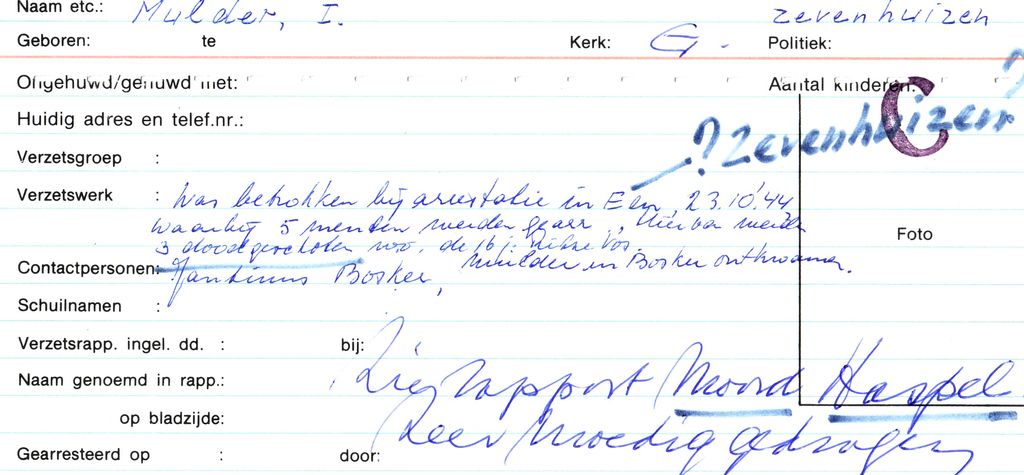 Naam etc.: Mulder, I. Zevenhuizen
Geboren: te Kerk: G. Politiek:
Ongehuwd/gehuwd met: Aantal kinderen: ?
C
Huidig adres en telef.nr.:
? Zevenhuizen
Verzetsgroep :
Verzetswerk : Was betrokken bij arrestatie in Een, 23.10.'44
waarbij 5 mensen werden gearr., Hiervan werden
3 doodgeschoten wo. de 16 j.
Mulder en Bosker ontkwamen.
Foto
Contactpersonen: Jantinus Bosker,
Schuilnamen :
Verzetsrapp. ingel. dd. : bij:
Naam genoemd in rapp.: Zie rapport Moord Haspel
op bladzijde: Zeer moedig gedragen
Gearresteerd op : door: